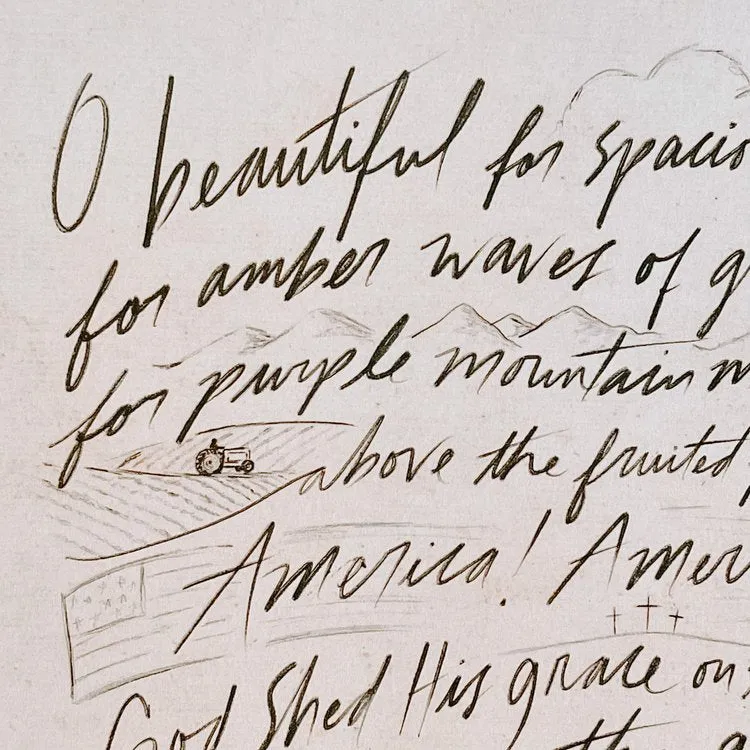 O beautiful for spacio
for amber waves of g
for purple mountain m
above the fruited
America! Amer
God shed His grace on
the